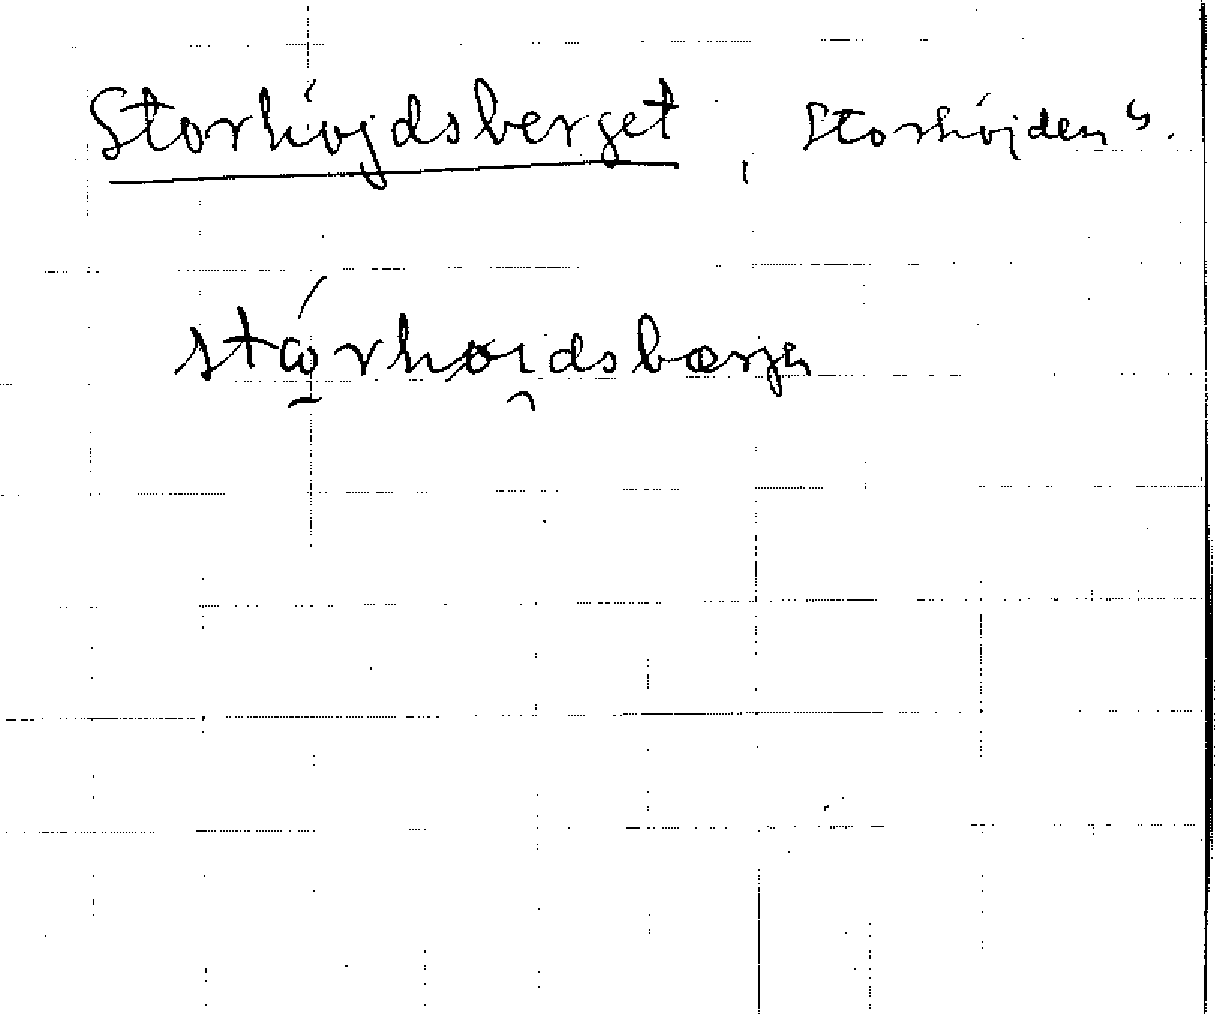 Storhöjdsberget, Storhöjden s.
stώ̱rhøi̯dsbærjɐ